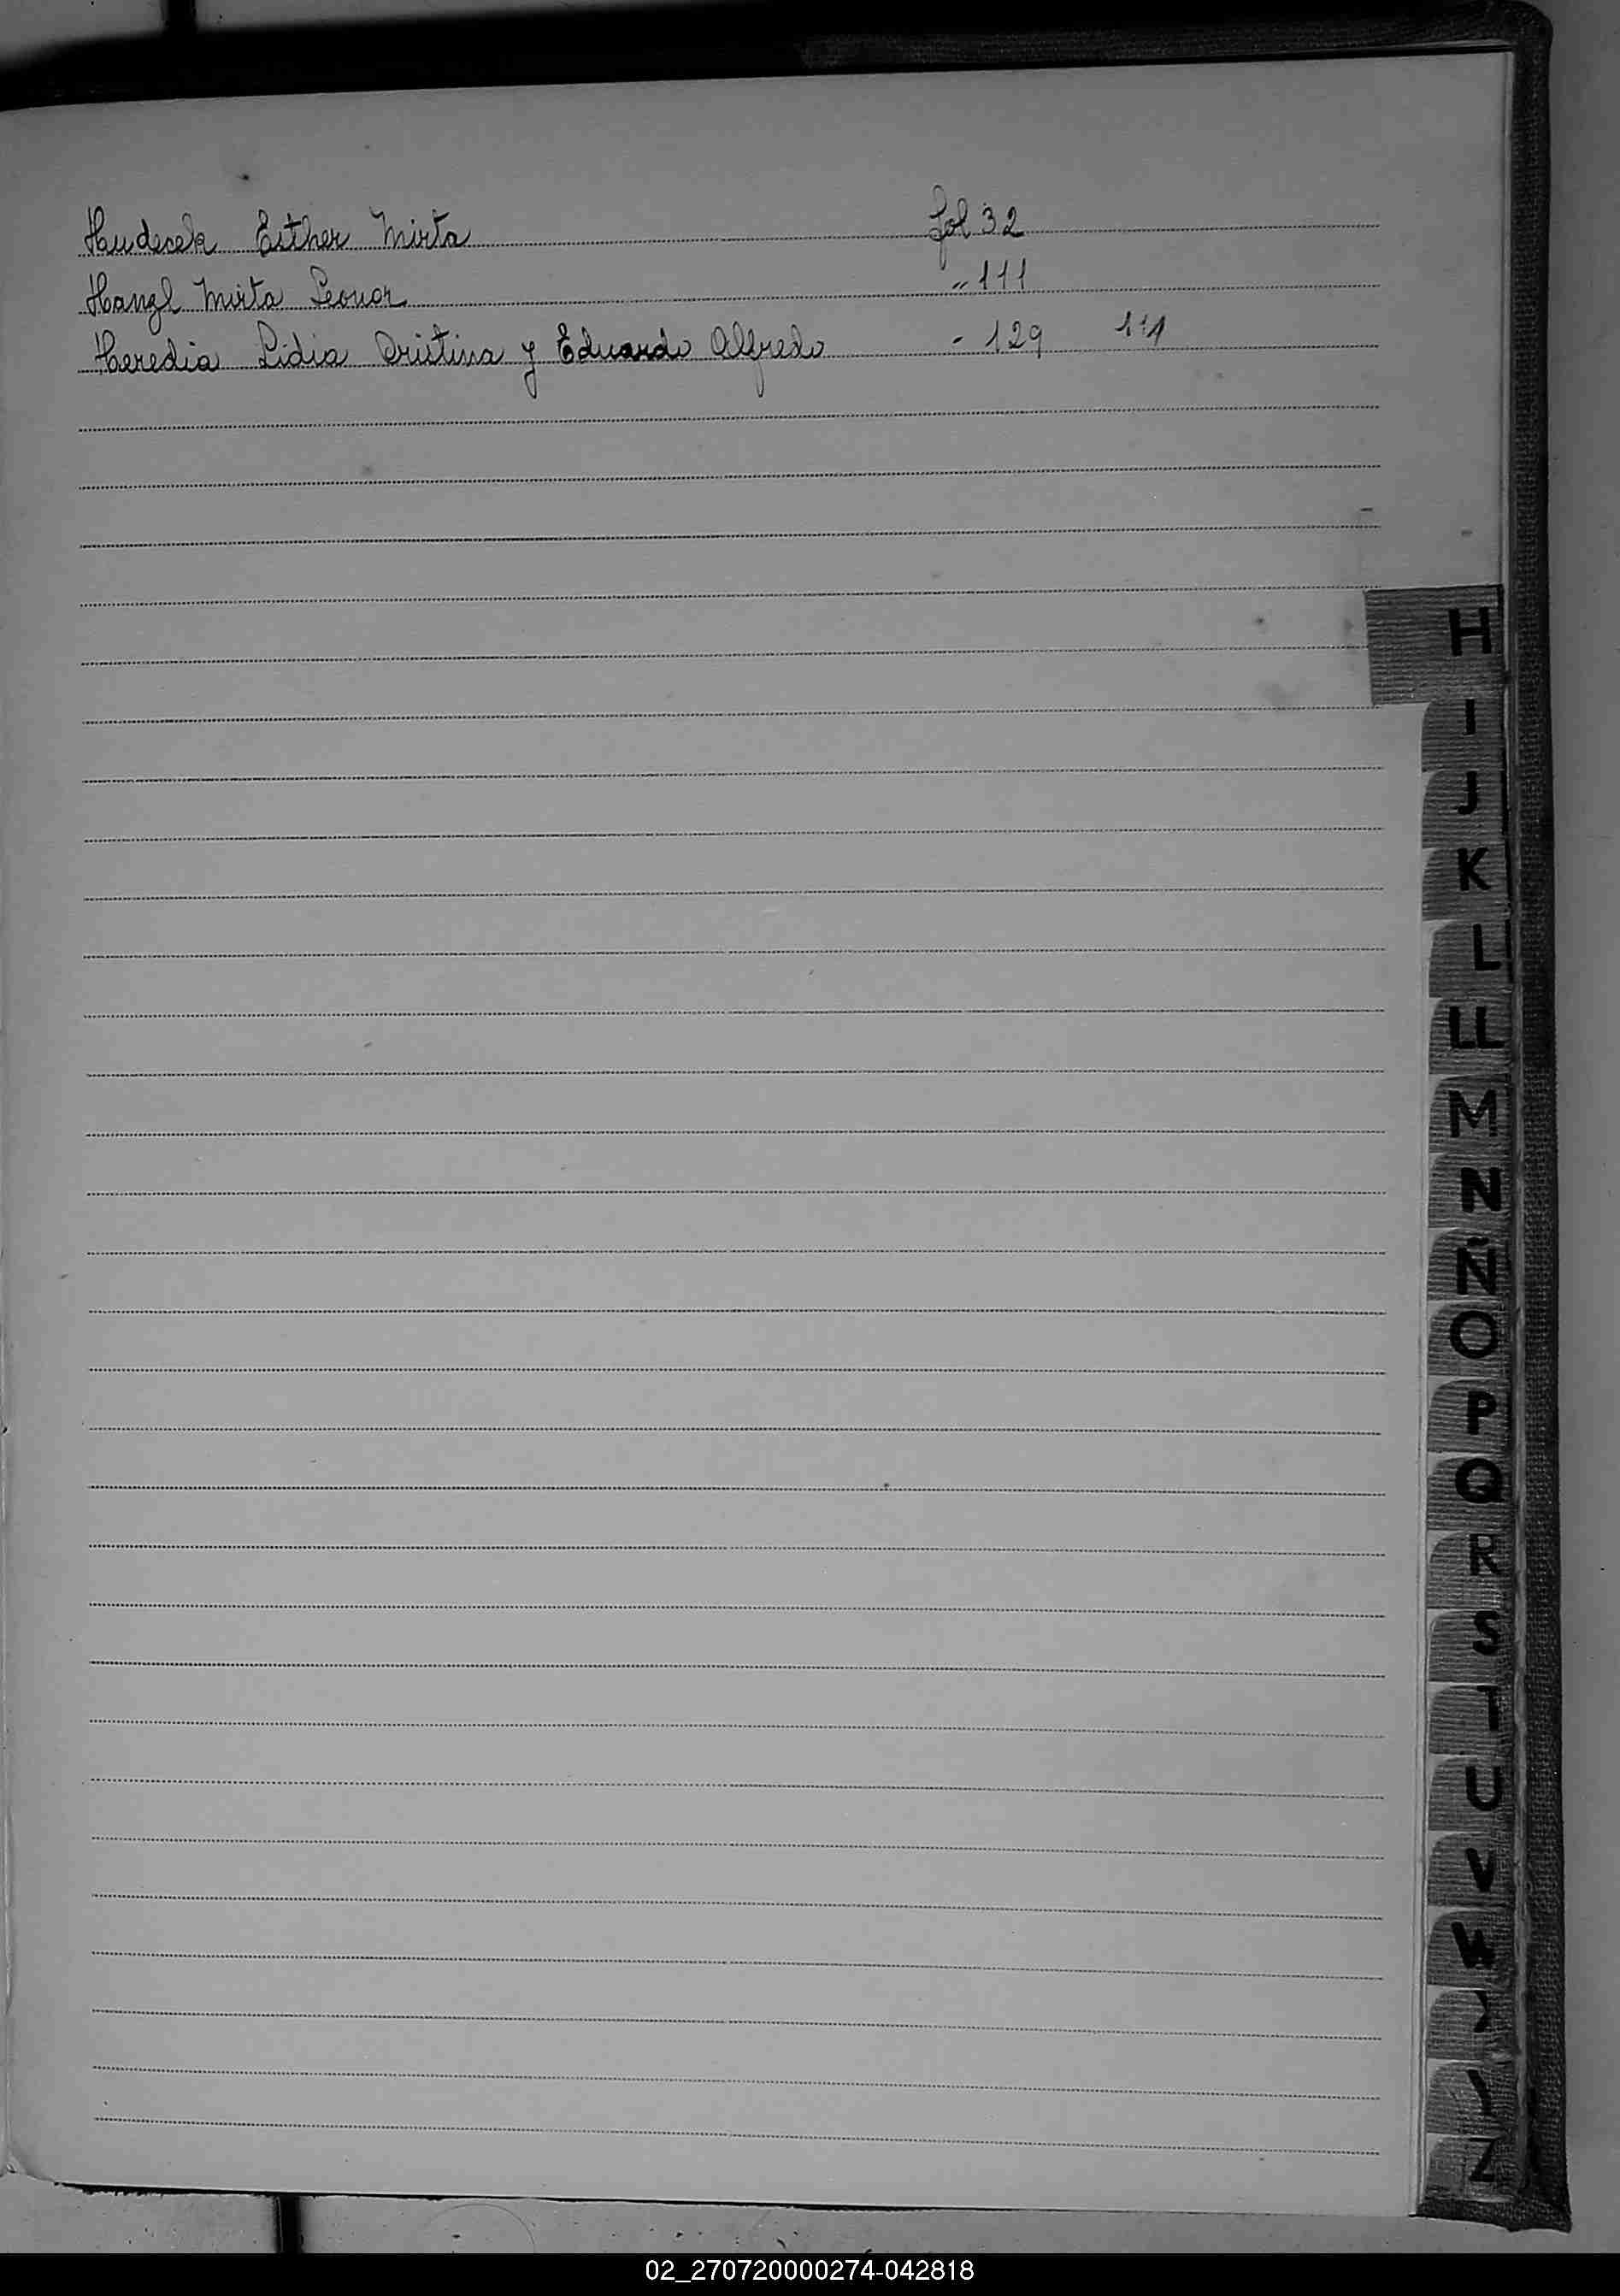 Hudecek Esther Mirta fol 32
Hangl Mirta Leonor " 111
Heredia Lidia Cristina y Eduardo Alfredo - 129 111
H
I
J
K
L
LL
M
N
Ñ
O
P
Q
R
S
T
U
V
W
Z
02_270720000274-042818